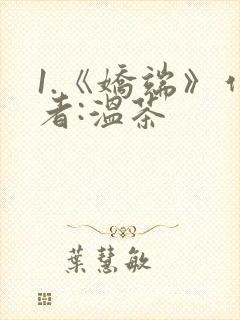 1.《嬌端》
者:溫茶
葉慧敏